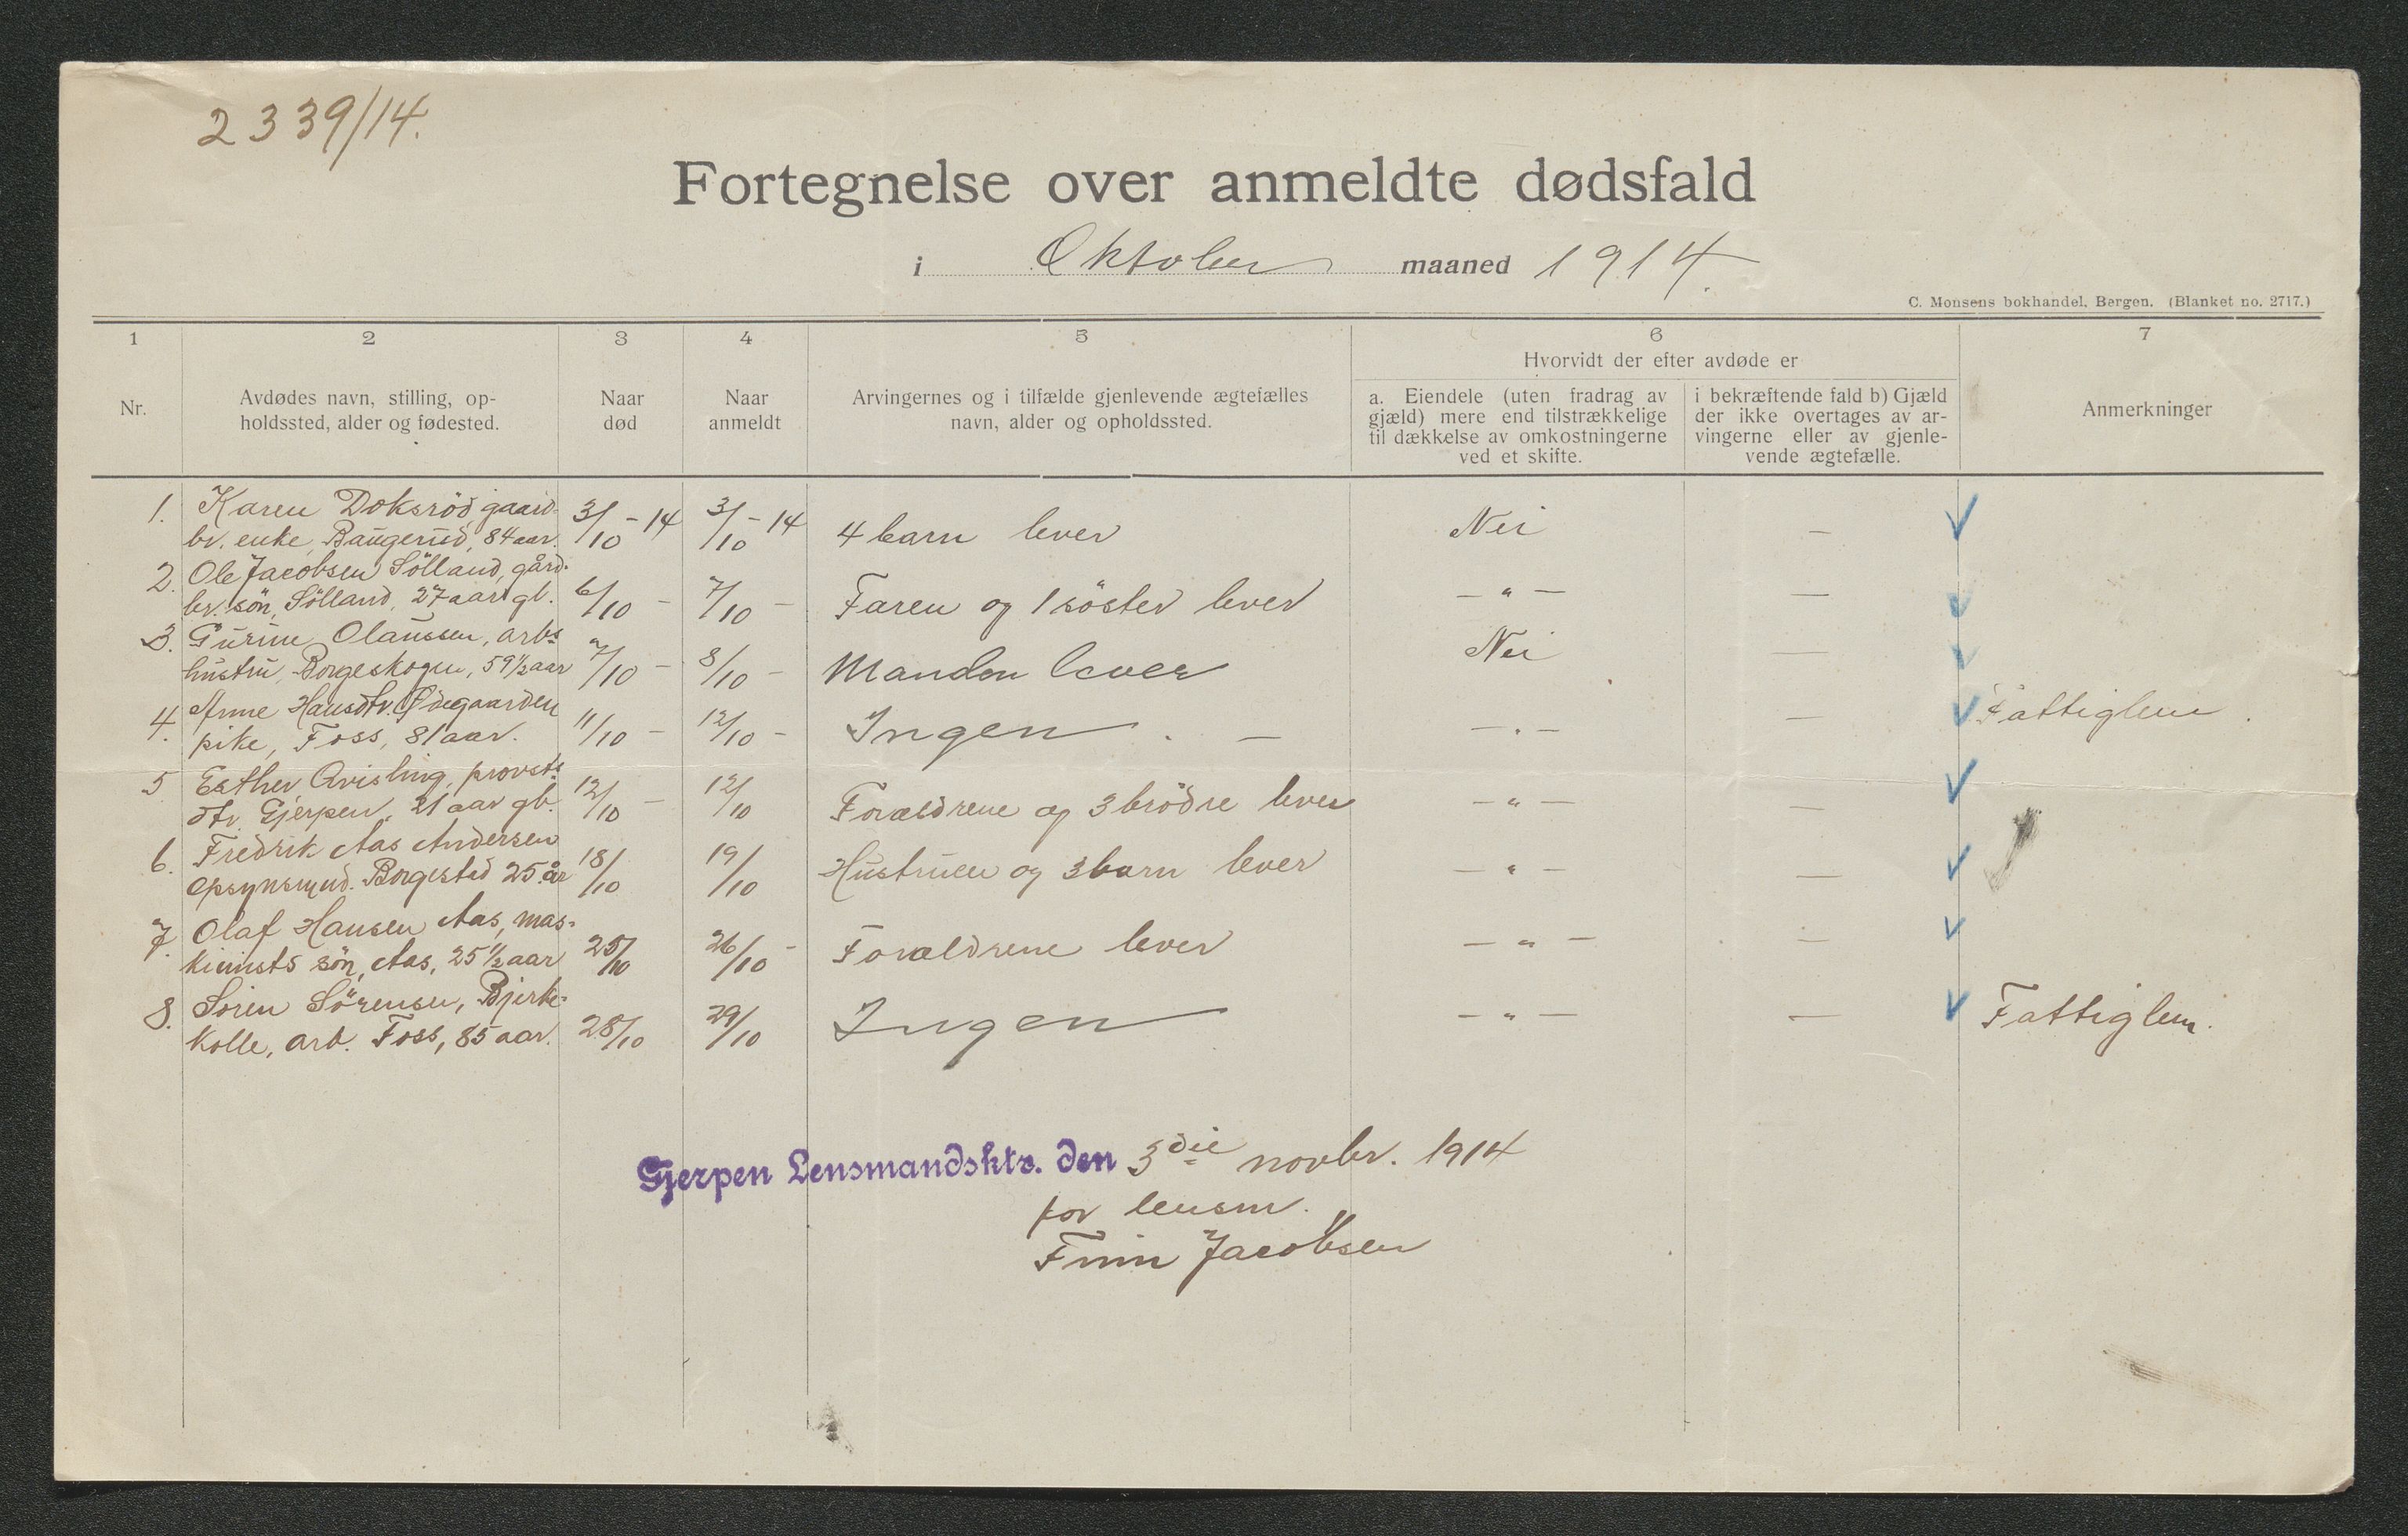 2339/14.
Fortegnelse over anmeldte dødsfald
i Oktober maaned 1914.
C. Monsens bokhandel, Bergen. (Blanket no. 2717.)
1 2 3 4 5 6 7
Hvorvidt der efter avdøde er
Nr.
Avdødes navn, stilling, op-
holdssted, alder og fødested.
Naar
død
Naar
anmeldt
Arvingernes og i tilfælde gjenlevende ægtefælles
navn, alder og opholdssted.
a. Eiendele (uten fradrag av
gjæld) mere end tilstrækkelige
til dækkelse av omkostningerne
ved et skifte.
i bekræftende fald b) Gjæld
der ikke overtages av ar-
vingerne eller av gjenle-
vende ægtefælle.
Anmerkninger
1. Karen Doksröd, gaard-
br. enke, Baugerud, 84 aar. 3/10 - 14 3/10 - 14 4 barn lever Nei —
2. Ole Jacobsen Sölland, gård-
br. sön, Sölland, 27 aar gl. 6/10 - 7/10 - Faren og 1 söster lever — " — —
3. Gurine Olaussen, arbs
hustru, Borgeskogen, 59 1/2 aar 7/10 - 8/10 - Manden lever Nei —
4. Anne Hansdtr. Ødegaarden
pike, Foss, 81 aar. 11/10 - 12/10 - Ingen. — — " — — Fattiglem.
5 Esther Qvisling, provsts
dtr. Gjerpen, 21 aar gl. 12/10 - 12/10 Forældrene og 3 brödre lever — " — —
6. Fredrik Aas Andersen
opsynsmd. Borgestad 25 år 18/10 19/10 Hustruen og 3 barn lever — " — —
7. Olaf Hansen Aas, mas-
kinists sön, Aas, 25 1/2 aar 25/10 26/10 - Forældrene lever — " — —
8. Sören Sörensen, Bjerke-
kolle, arb. Foss, 85 aar. 28/10 29/10 Ingen — " — — Fattiglem.
Gjerpen Lensmandsktr. den 3die novbr. 1914
for lensm.
Finn Jacobsen